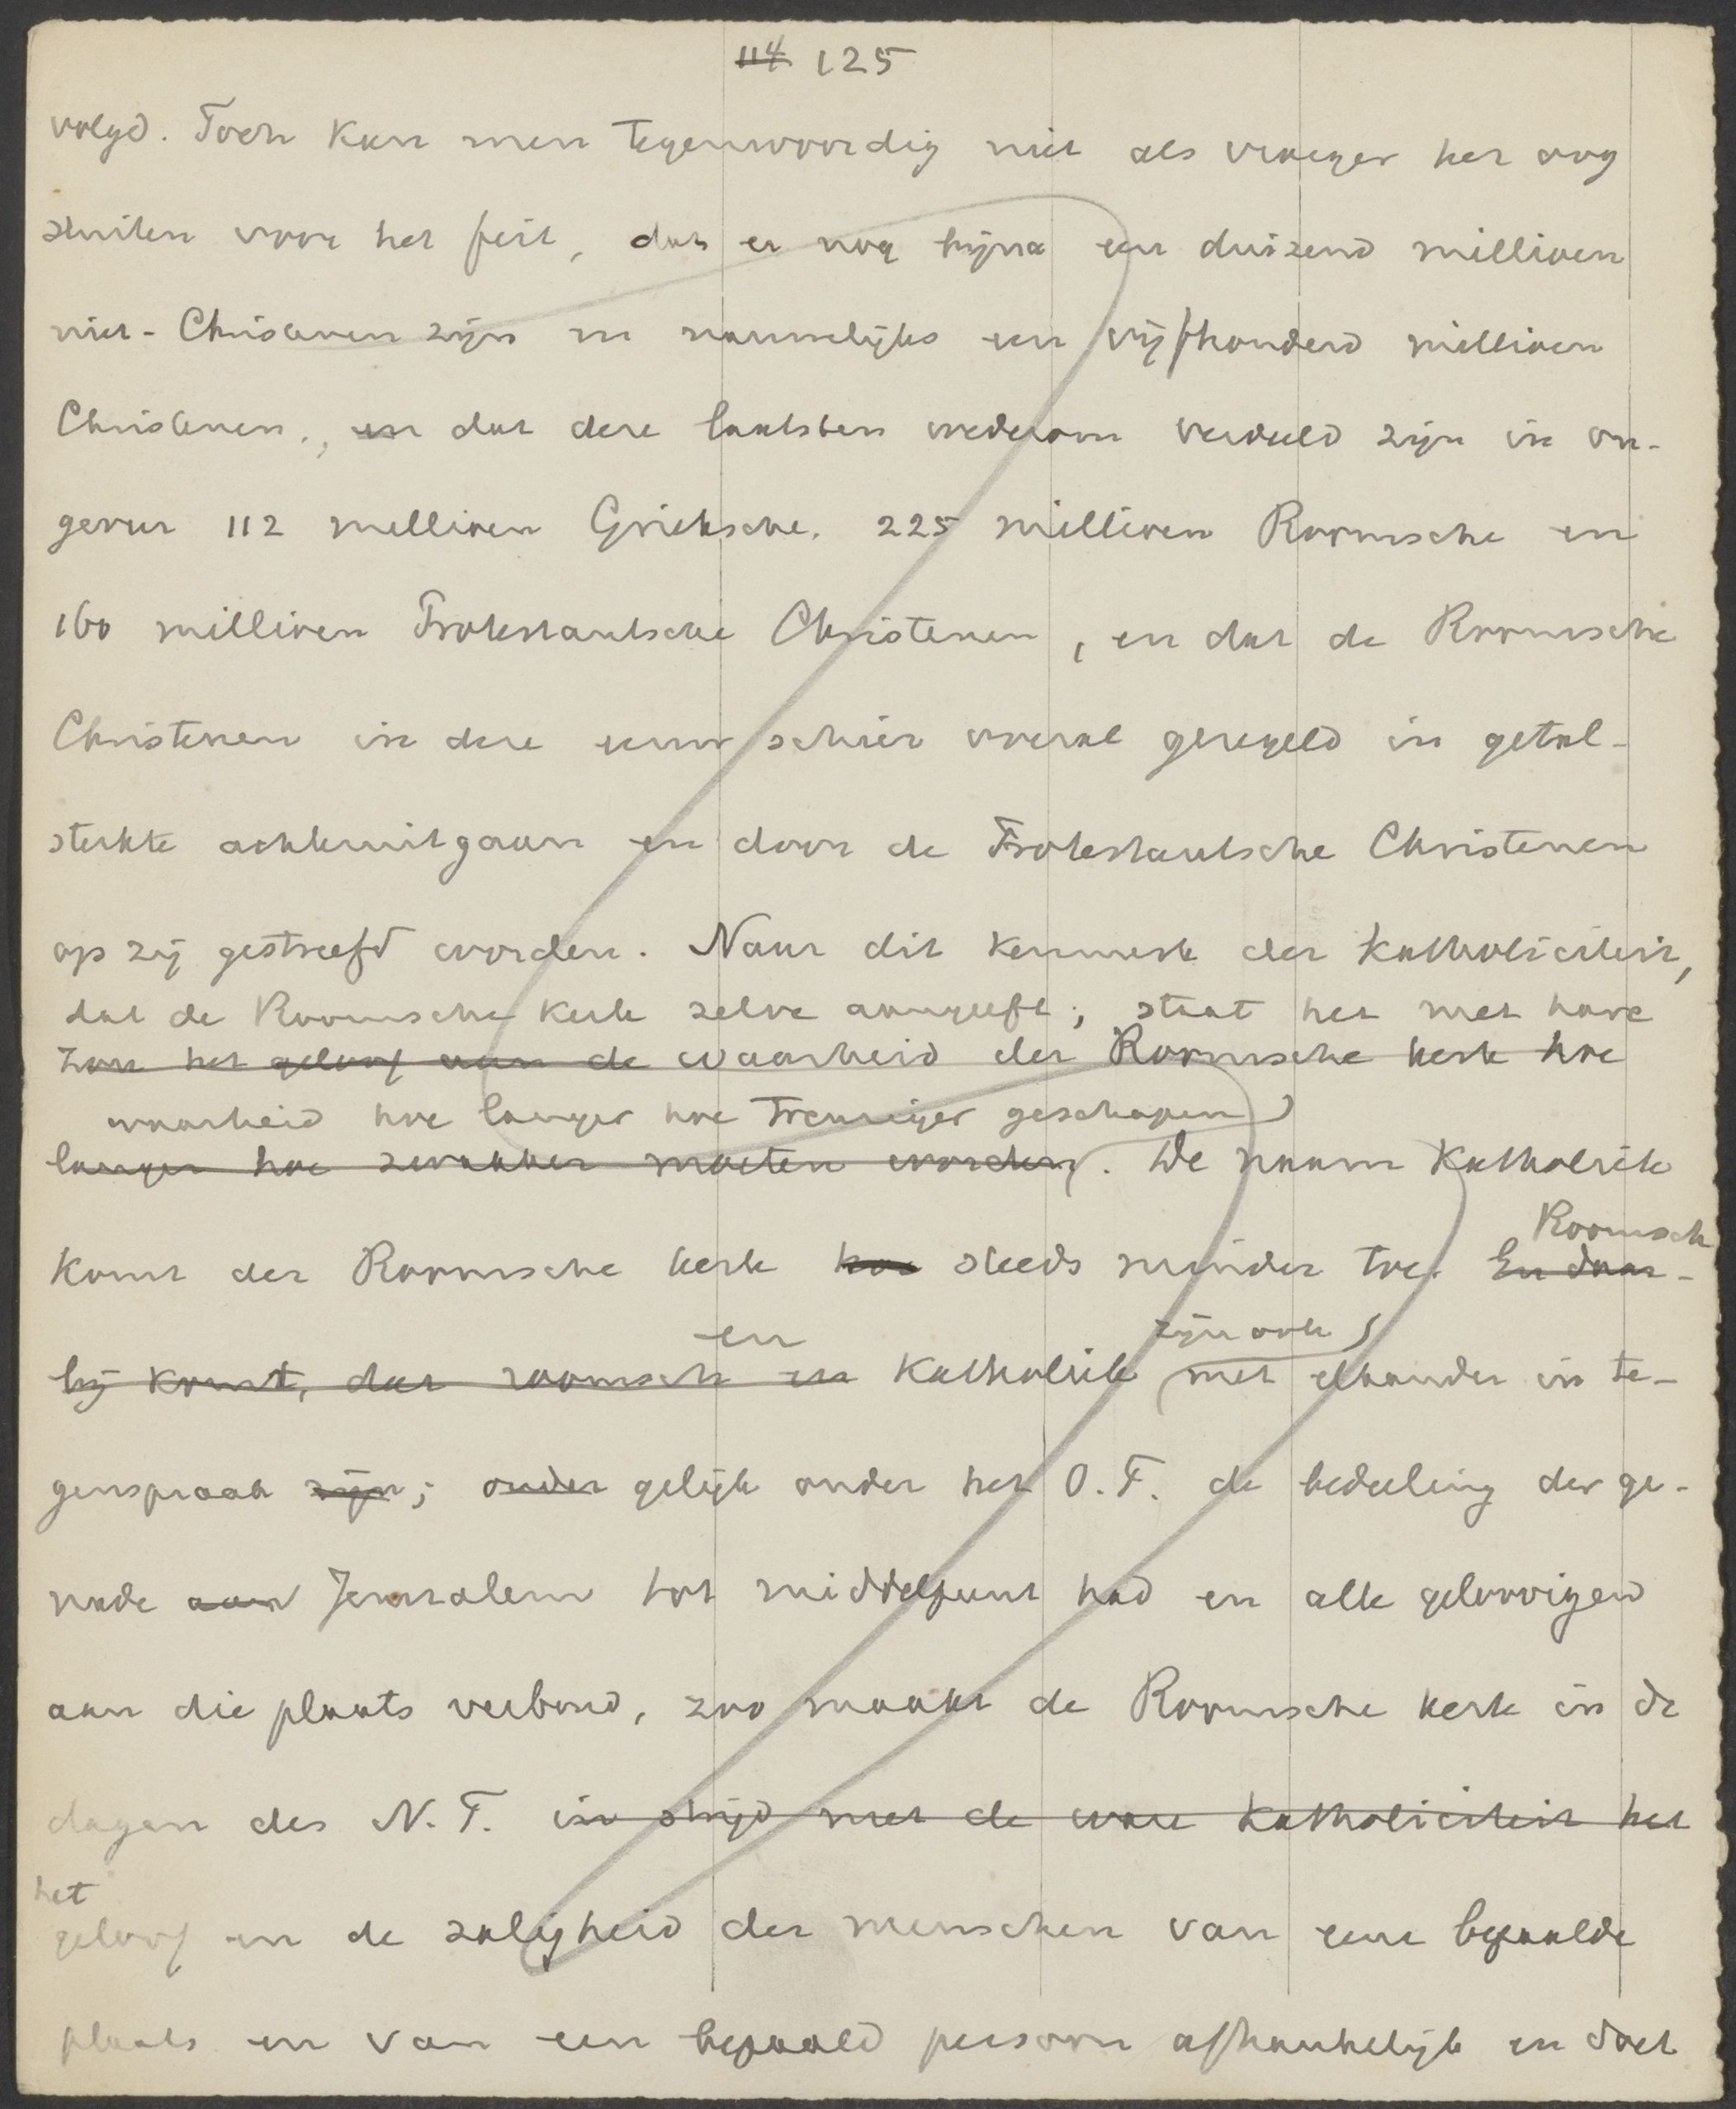 114 125
volgd. Toch kan men tegenwoordig niet als vroeger het oog
sluiten voor het feit, dat er nog bijna een duizend millioen
niet-Christenen zijn en nauwelijks een vijfhonderd millioen
Christenen, en dat deze laatsten wederom verdeeld zijn in on-
geveer 112 millioen Grieksche, 225 millioen Roomsche en
160 millioen Protestantsche Christenen, en dat de Roomsche
Christenen in deze eeuw schier overal geregeld in getal-
sterkte achteruitgaan en door de Protestantsche Christenen
op zij gestreefd worden. Naar dit kenmerk der Katholiciteit,
dat de Roomsche Kerk zelve aangeeft, staat het met hare
zou het geloof aan de waarheid der Roomsche kerk hoe
waarheid hoe langer hoe treuriger geschapen
langer hoe zwakker moeten worden. De naam Katholiek
komt der Roomsche kerk hoe steeds minder toe. En daar-
Roomsch
en zijn ook
bij komt, dat roomsch en Katholiek met elkander in te-
genspraak zijn; onder gelijk onder het O.T. de bedeeling der ge-
nade aan Jeruzalem tot middelpunt had en alle geloovigen
aan die plaats verbond, zoo maakt de Roomsche kerk in de
dagen des N.T. in strijd met de ware Katholiciteit het
het
geloof en de zaligheid der menschen van eene bepaalde
plaats en van een bepaald persoon afhankelijk en doet